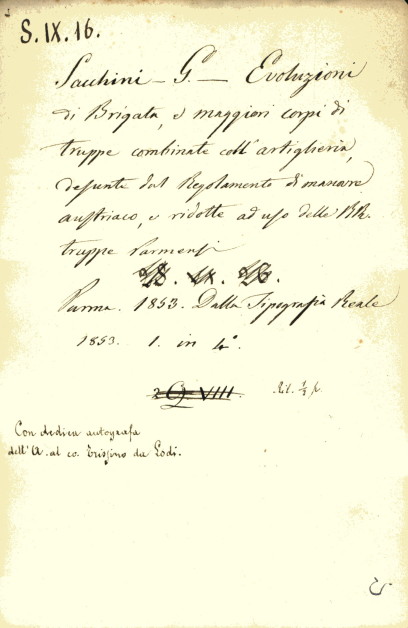 S. IX. 16.
Sacchini - G. - Evoluzioni
di Brigata, e maggiori corpi di
truppe combinate coll'artiglieria,
desunte dal Regolamento di manovre
austriaco, e ridotte ad uso delle RR.
truppe Parmensi
Parma. 1853. Dalla Tipografia Reale
1853. 1. in 4°.
VIII.
Con dedica autografa
dell'A. al co. Trissino da Lodi.